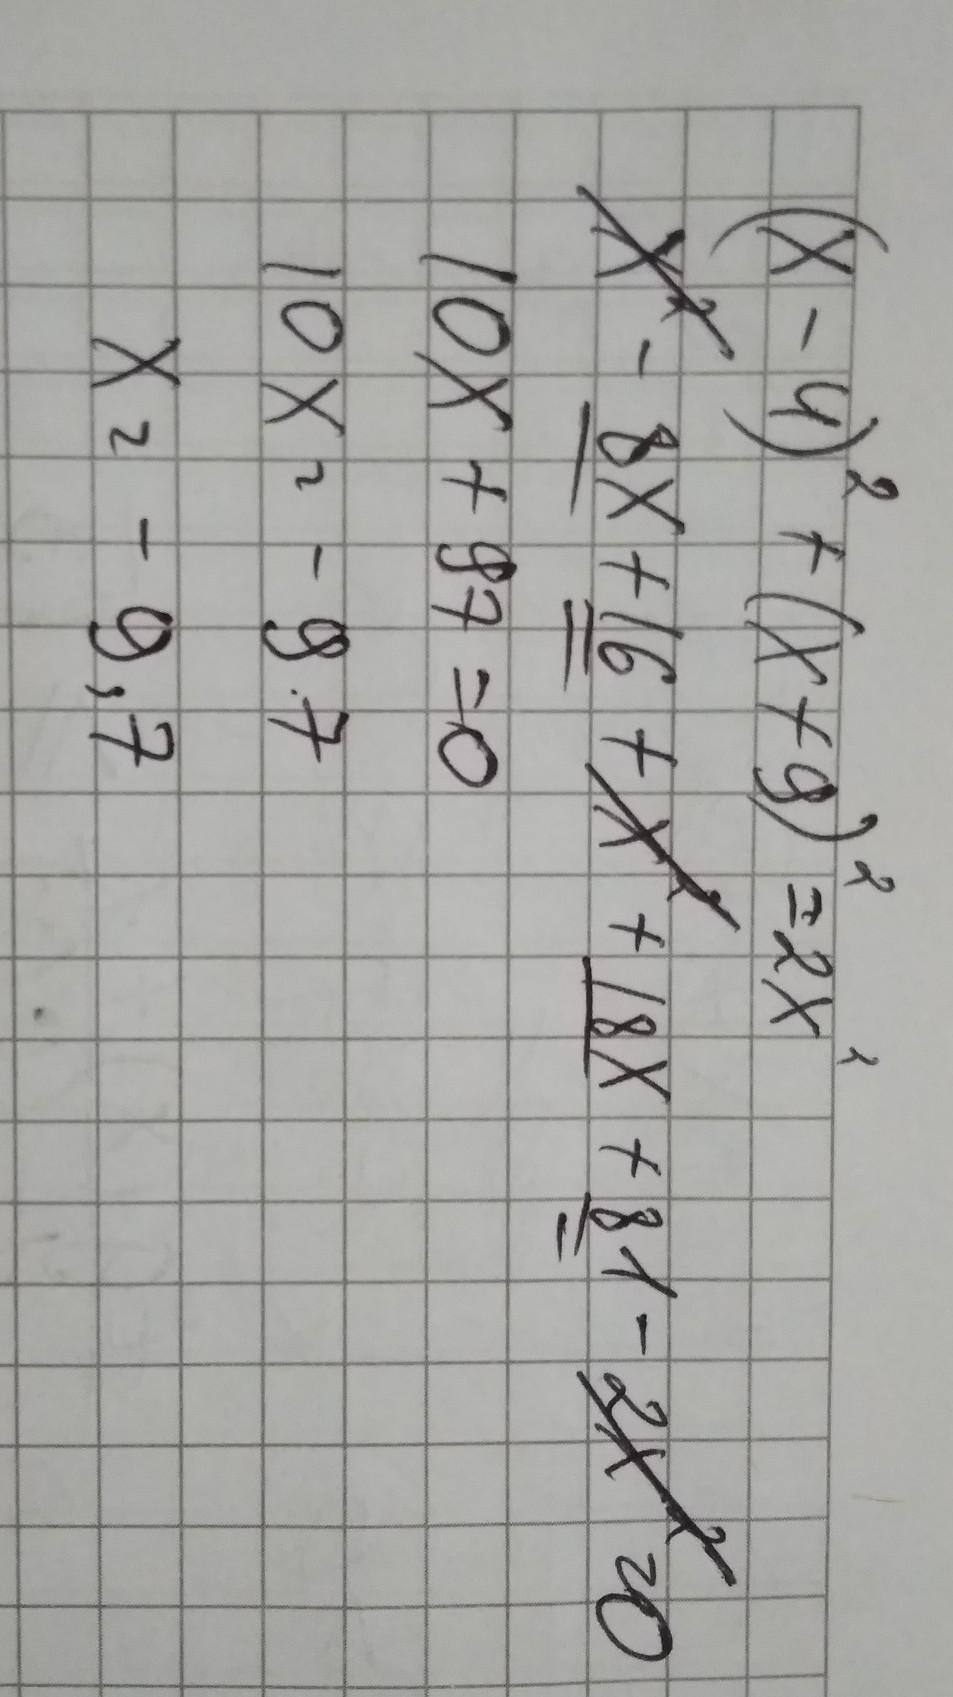 (x - 4)² + (x + 9)² = 2x²
x² - 8x + 16 + x² + 18x + 81 - 2x² = 0
10x + 97 = 0
10x = - 97
x = - 9,7